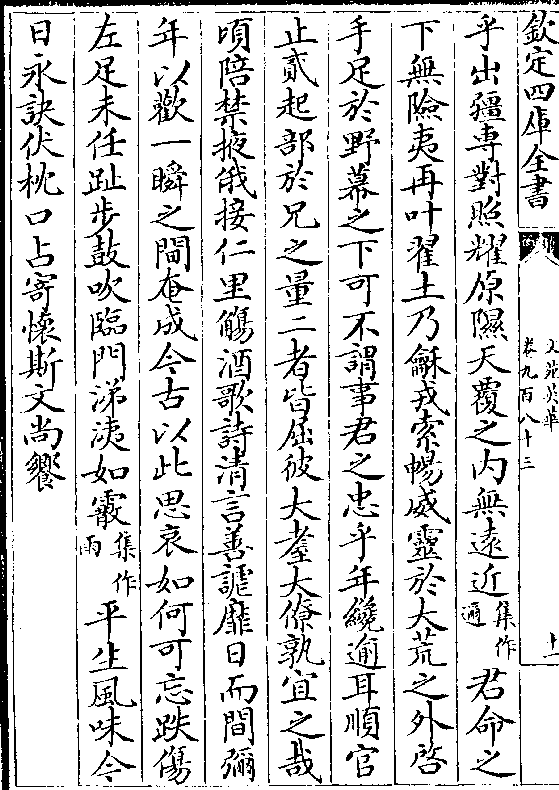 欽定四庫全書
文苑英華
卷九百八十三
十一
乎出彊専對照耀原隰天覆之内無逺近集作邇君命之
下無險夷再叶翟土乃龢戎索暢威靈於大荒之外啓
手足於野幕之下可不謂事君之忠乎年纔逾耳順官
止貳起部於兄之量二者皆屈彼大耋大僚孰宜之哉
頃陪禁掖俄接仁里觴酒歌詩清言善謔靡日而間彌
年以歡一瞬之間奄成今古以此思哀如何可忘跌傷
左足未任趾步鼓吹臨門涕洟如霰集作雨平生風味今
日永訣伏枕口占寄懷斯文尚饗